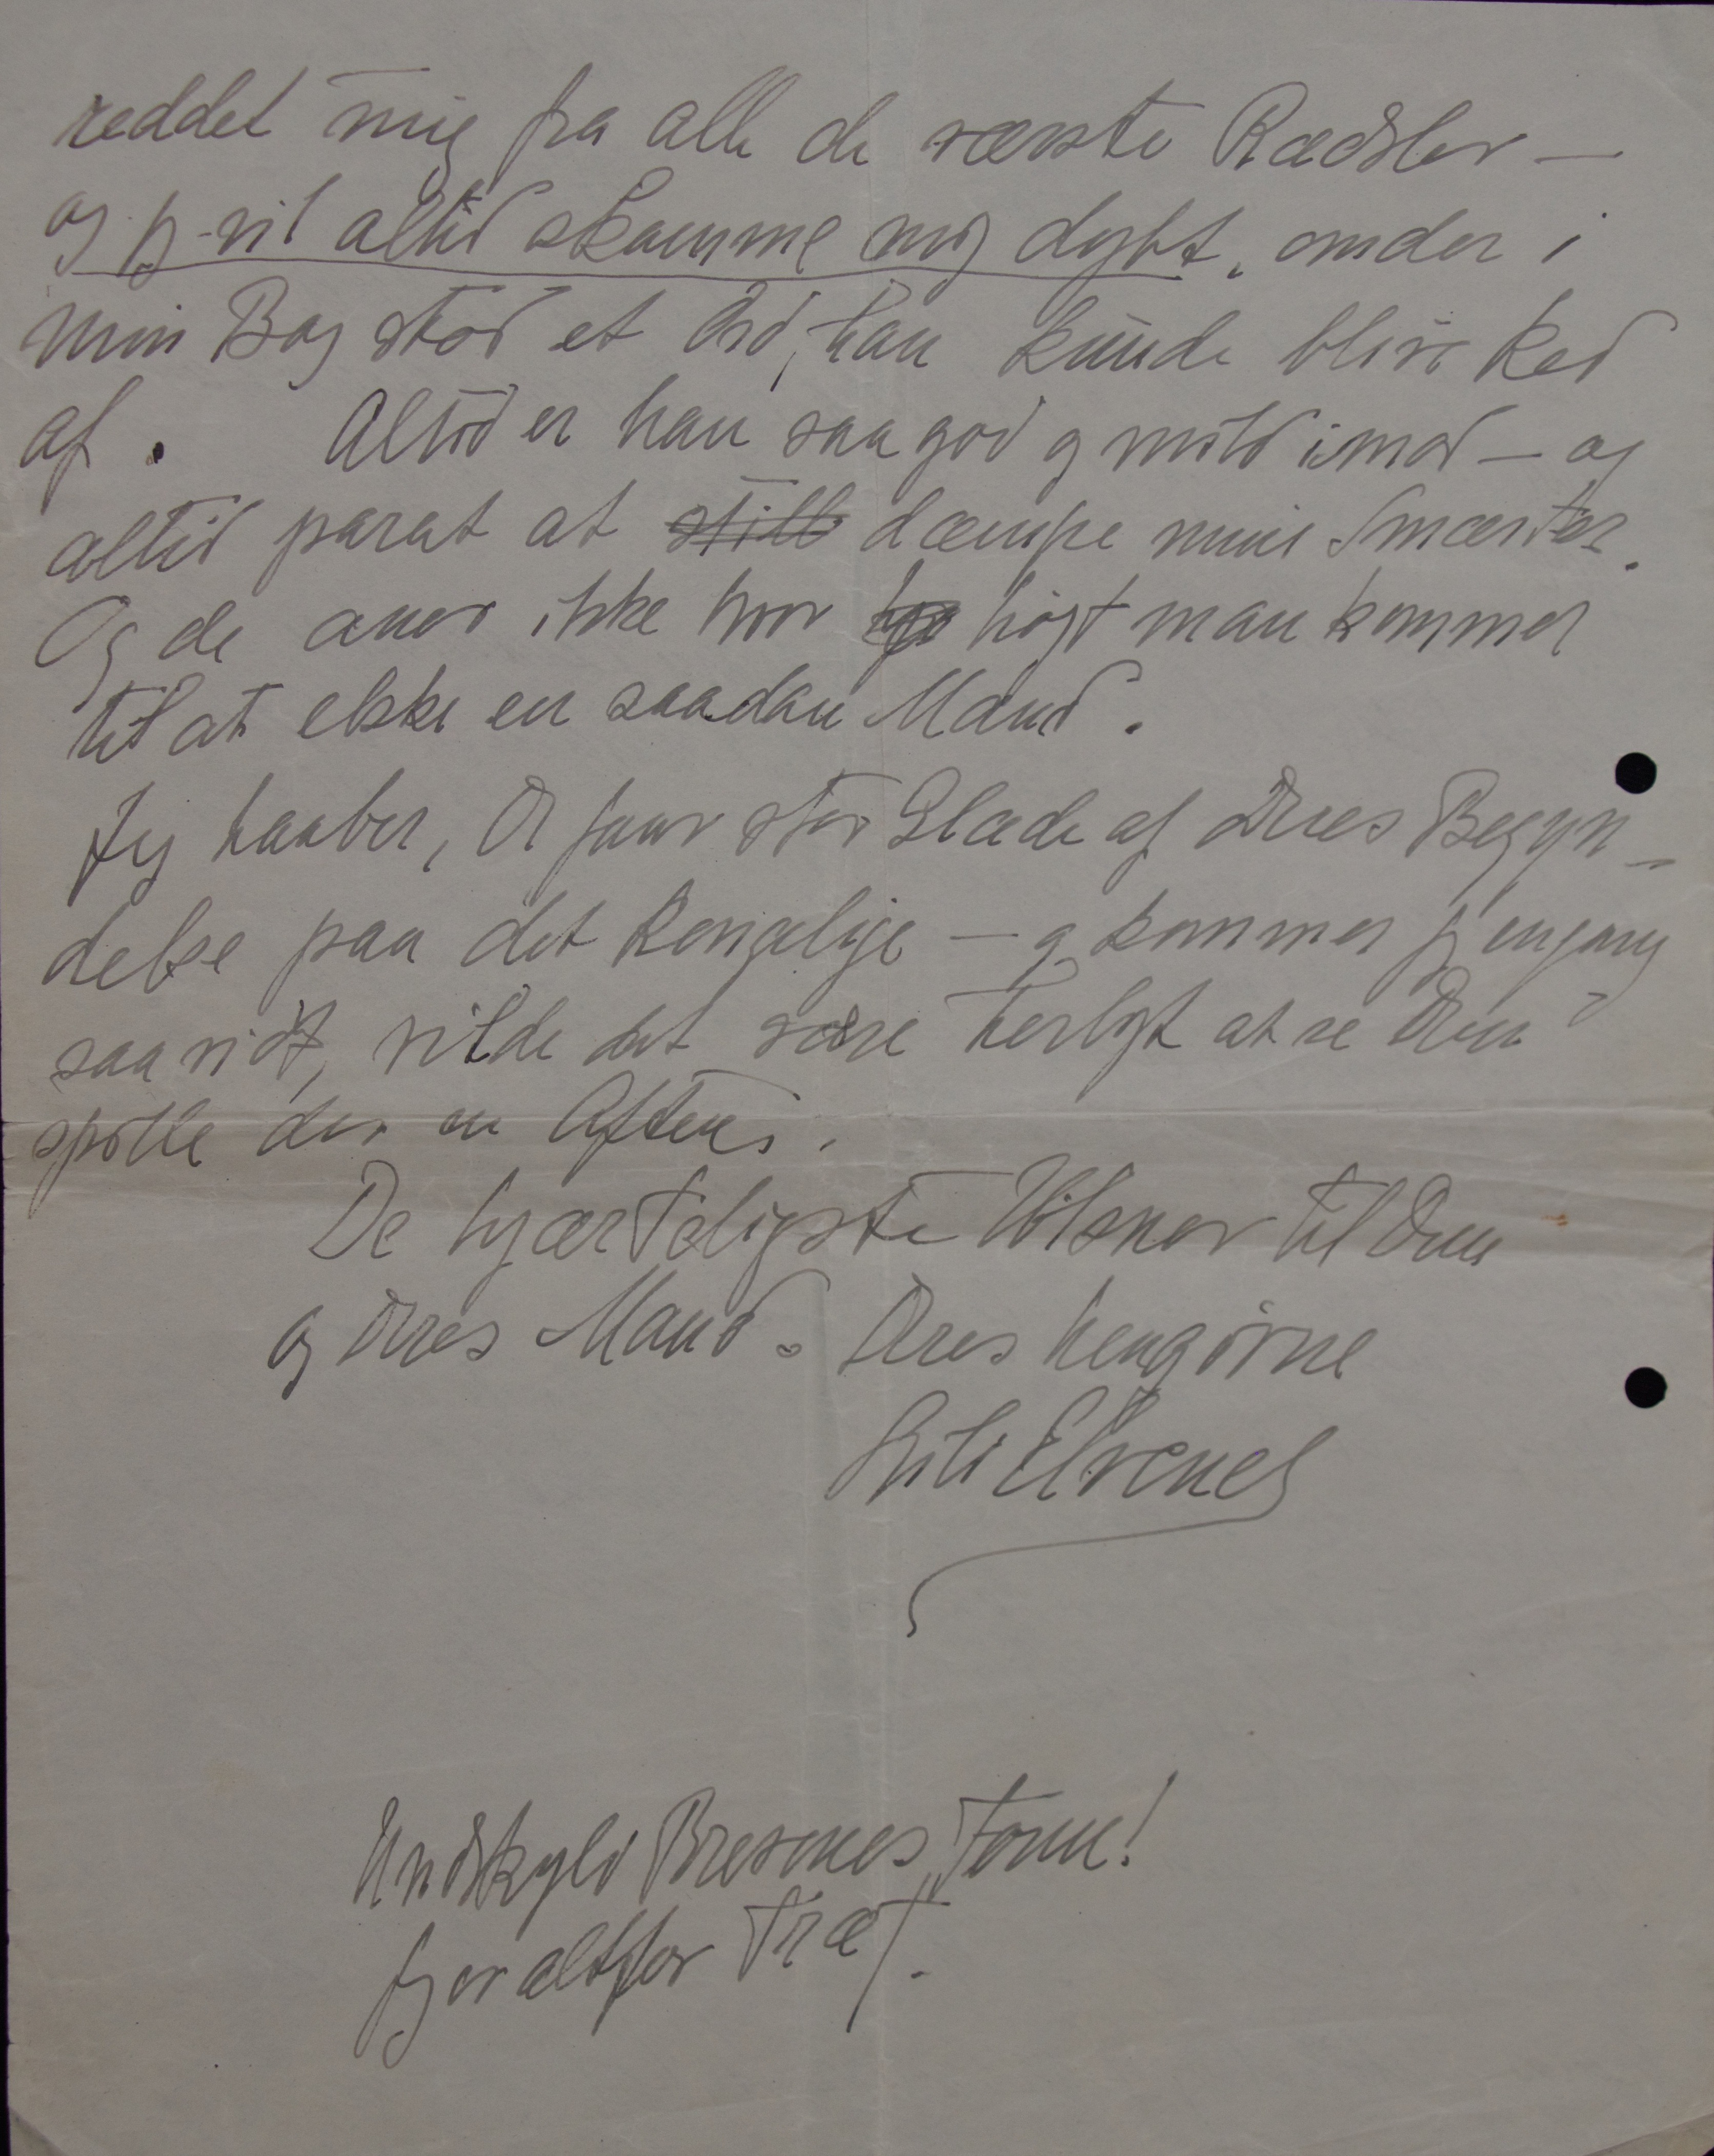 reddet mig fra alle de værste Rædsler —
og jeg vil altid skamme mig dybt, om der i
min Bog stod et Ord, han kunde blive ked
af. Altid er han saa god og mild imod — og
altid parat at stille dæmpe mine Smerter.
Og de aner ikke hvor højt man kommer
til at elske en saadan Mand.
Jeg haaber, De faar stor Glæde af Deres Begyn-
delse paa det kongelige — og kommer jeg engang
saa vidt, vilde det være herligt at se Dem
spille der en Aften.
De hjærteligste Hilsner til Dem
og Deres Mand. Deres hengivne
Lili Elvenes
Undskyld Brevets Form!
Jeg er altfor træt.